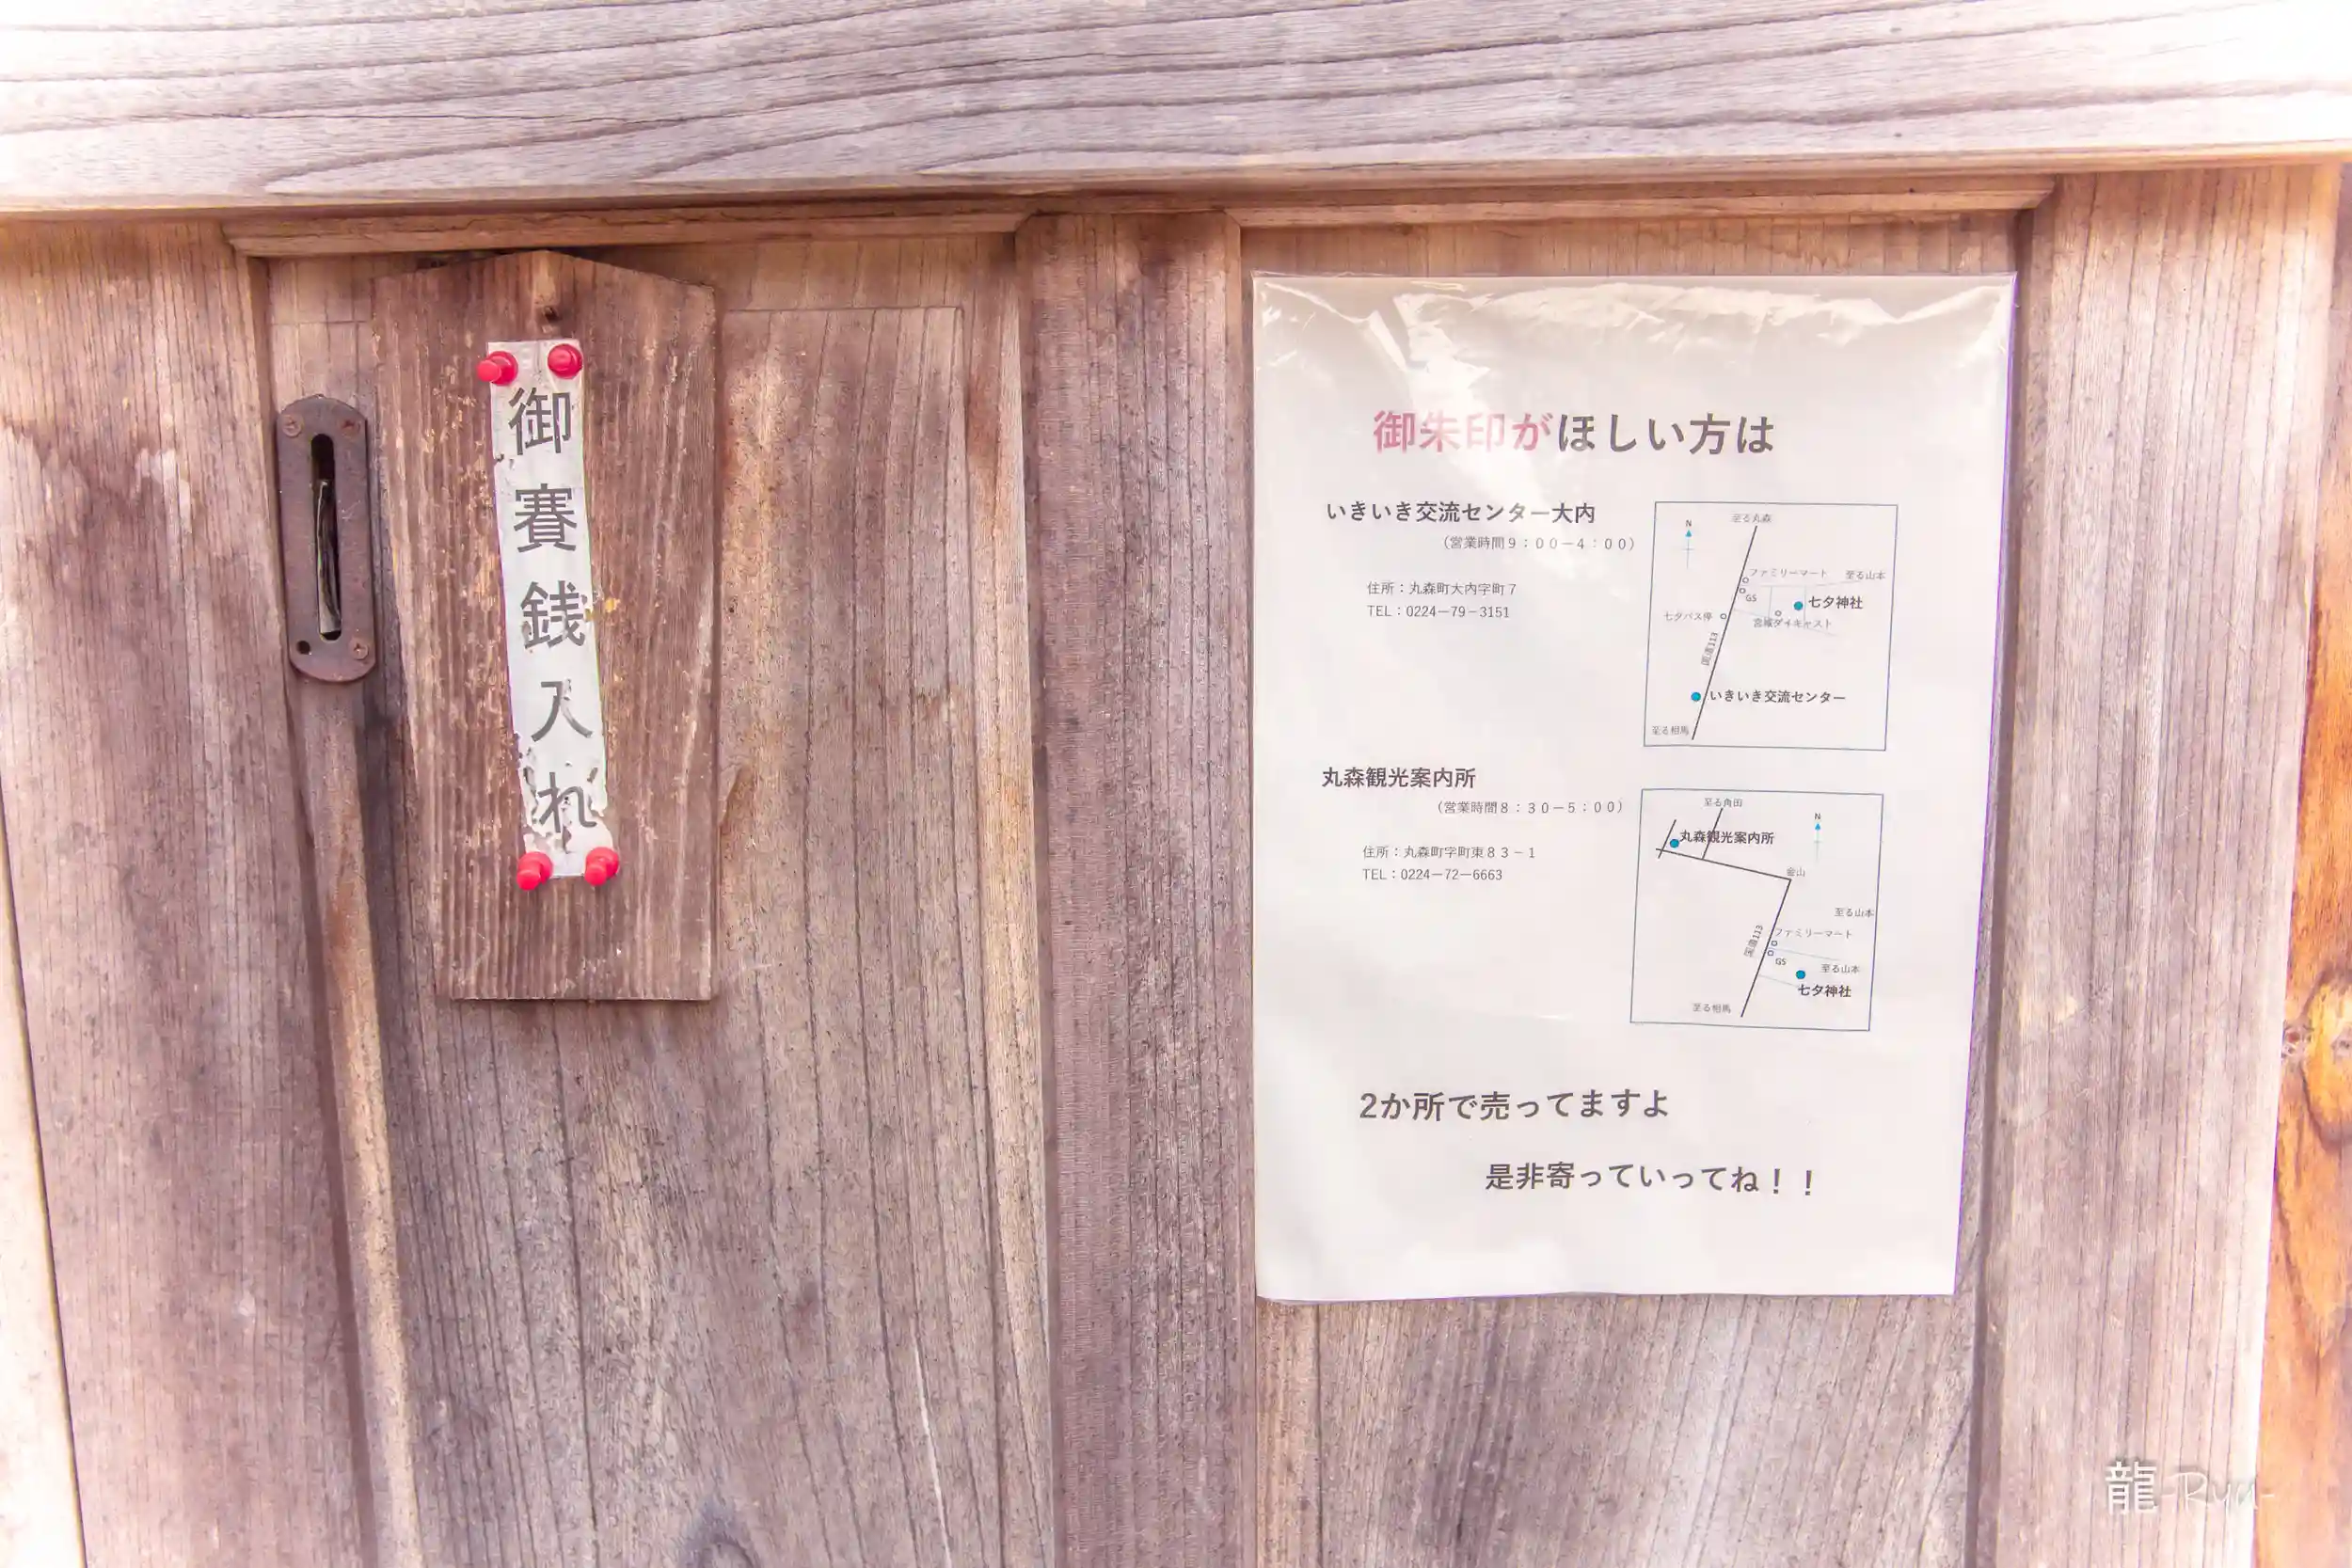 御賽銭入れ
御朱印がほしい方は
いきいき交流センター大内
（営業時間９：００－４：００）
住所：丸森町大内字町７
TEL：0224－79－3151
至る丸森
N
ファミリーマート
至る山本
GS
七夕神社
七夕バス停
宮城ダイキャスト
国道113
いきいき交流センター
至る相馬
丸森観光案内所
（営業時間８：３０－５：００）
住所：丸森町字町東８３－１
TEL：0224－72－6663
至る角田
N
丸森観光案内所
金山
至る山本
ファミリーマート
国道113
GS
至る山本
七夕神社
至る相馬
2か所で売ってますよ
是非寄っていってね！！
龍-Ryu-